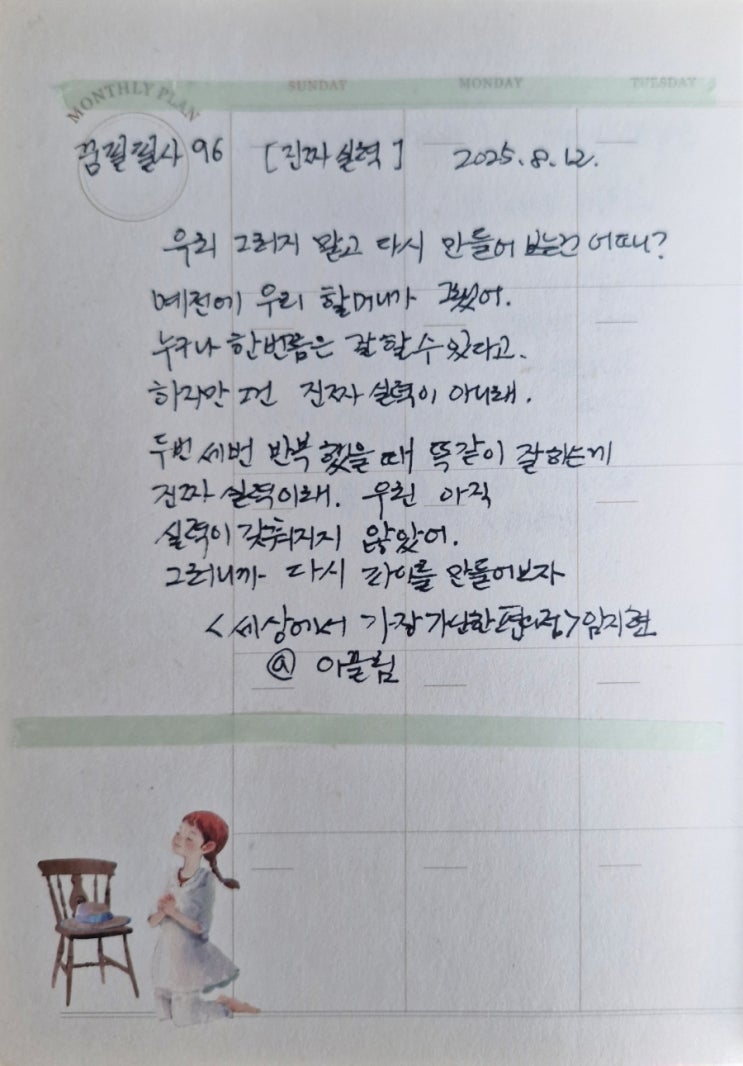 MONTHLY PLAN
SUNDAY MONDAY TUESDAY
꿈필필사 96 [진짜 실력] 2025.8.12.
우리 그러지 말고 다시 만들어 보는건 어때?
예전에 우리 할머니가 그랬어.
누구나 한번쯤은 잘 할 수 있다고.
하지만 그건 진짜 실력이 아니래.
두번 세번 반복했을 때 똑같이 잘하는게
진짜 실력이래. 우린 아직
실력이 갖춰지지 않았어.
그러니까 다시 파이를 만들어보자
<세상에서 가장 가난한 편의점> 임지현
@ 아끌림